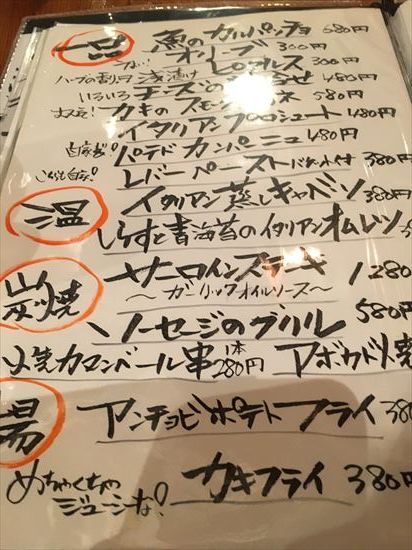 一品 魚のカルパッチョ 580円
オリーブ 300円
うまい! ピクルス 300円
ハーブの香り♪ 浅漬け
いろいろチーズの盛合せ 480円
すげえ! カキのスモーク 580円
イタリアンプロシュート 480円
自家製! パテドカンパーニュ 480円
こちらも自家! レバーペースト バゲット付 380円
温 イタリアン蒸しキャベツ 380円
しらすと青海苔のイタリアンオムレツ
炭焼 サーロインステーキ 1280
~ガーリックオイルソース~
ソーセージのグリル 580円
カマンベール串 1本280円 アボカド焼
揚 アンチョビポテトフライ 380
めちゃくちゃジューシーな! カキフライ 380円